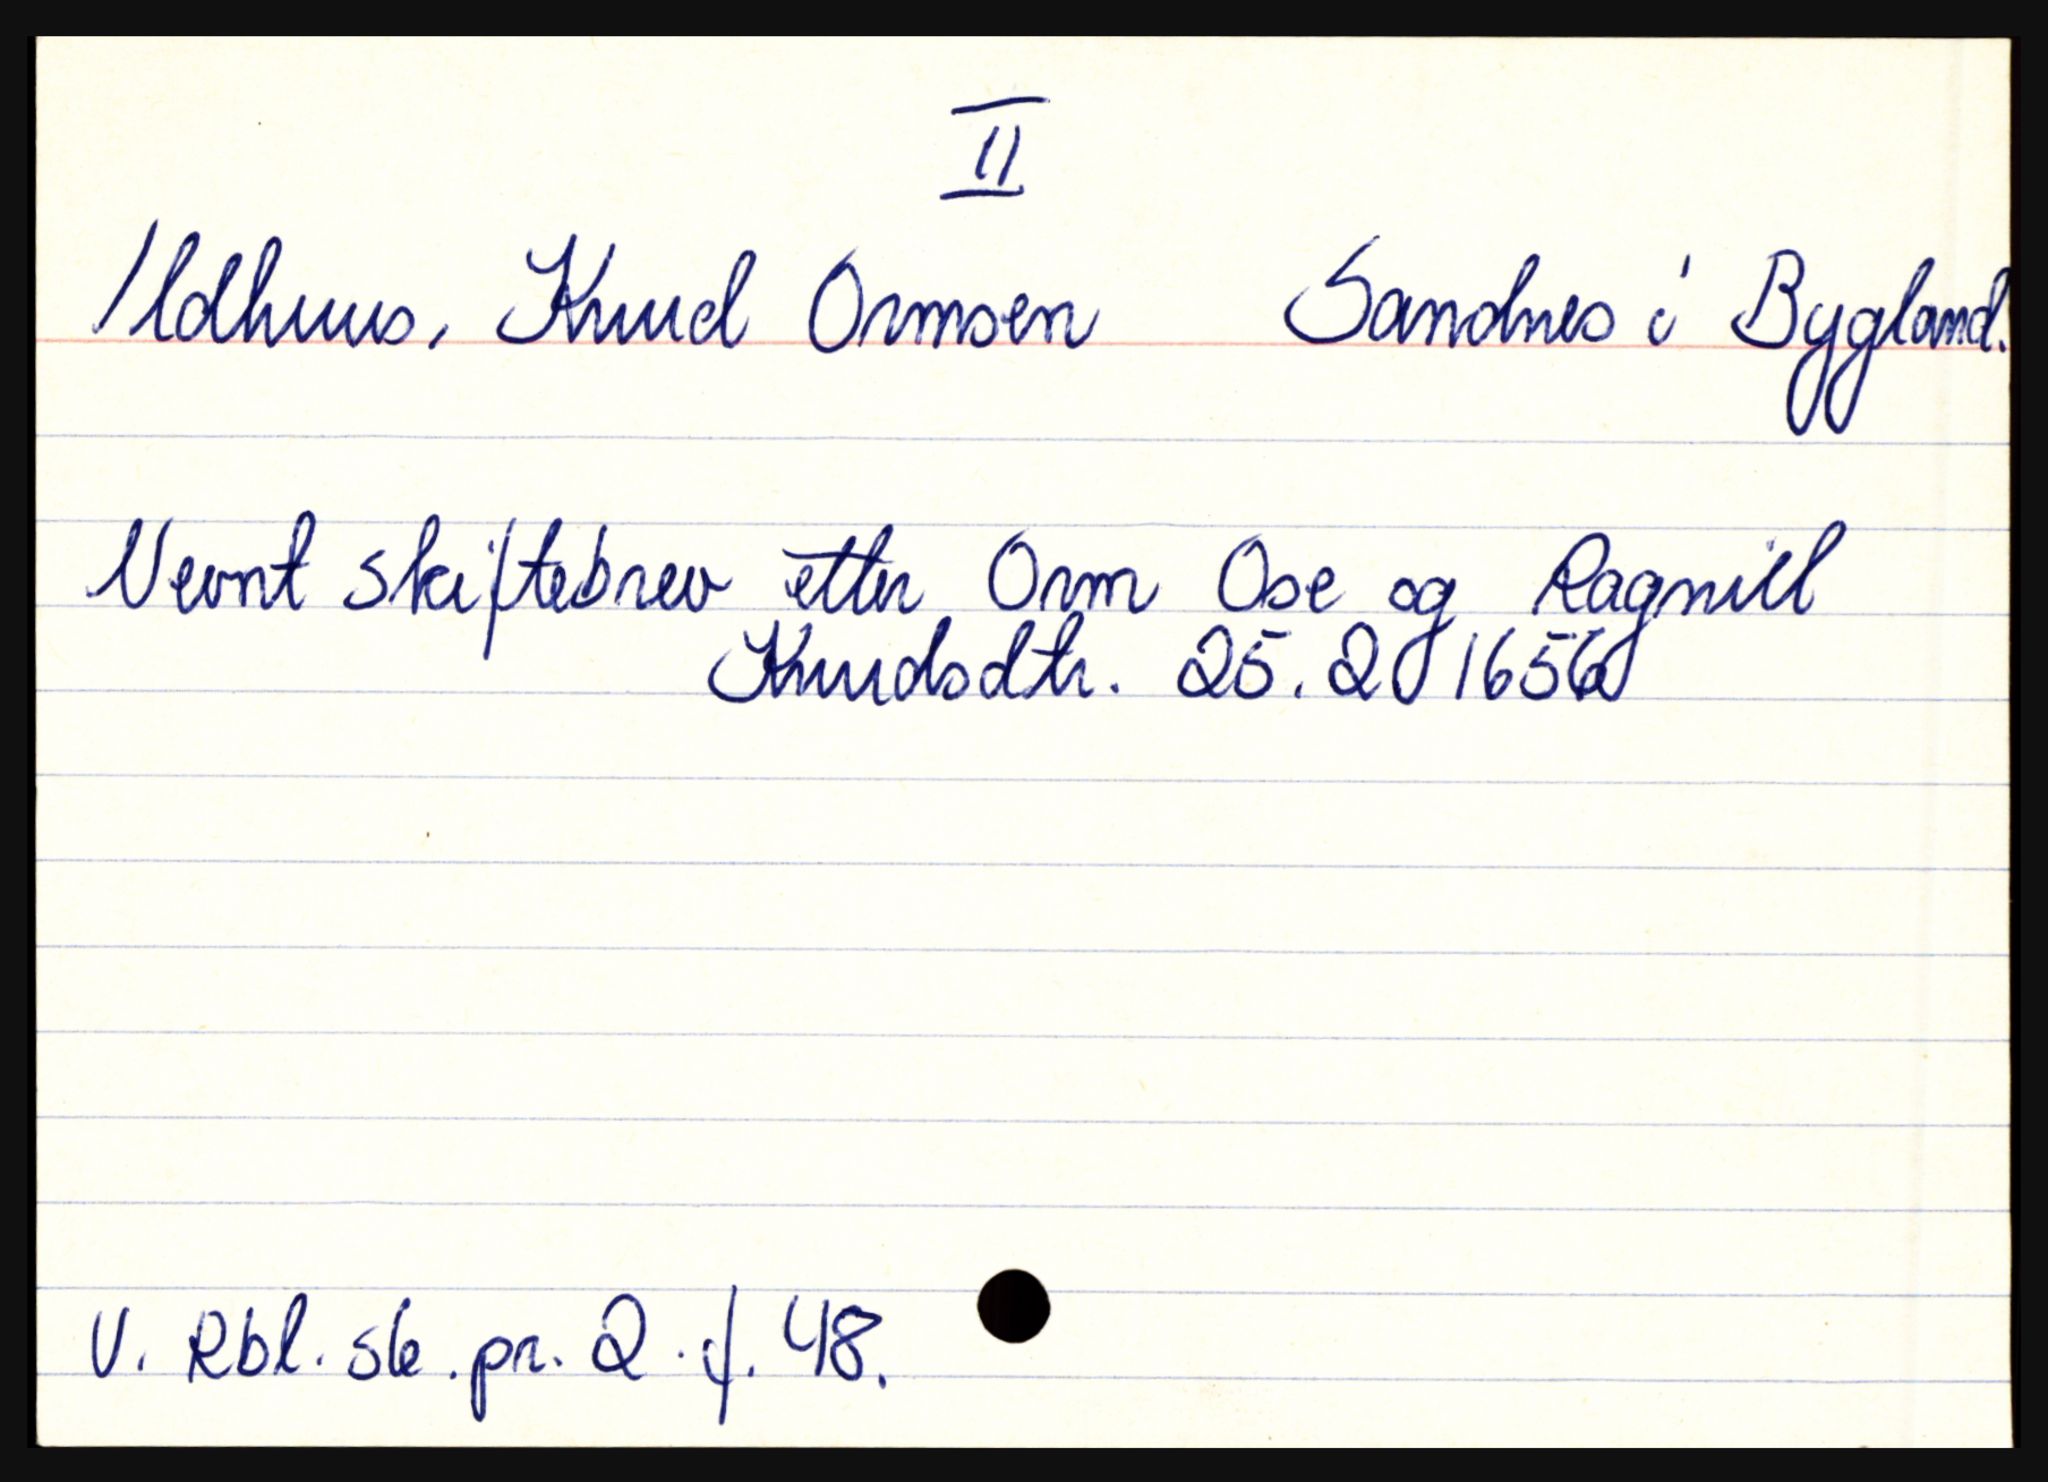 II
Ildhuus, Knud Ormsen Sandnes i Bygland.
Nevnt skiftebrev etter Orm Ose og Ragnill
Knudsdtr. 25. 2 1656
V. Rbl. sk. pr. 2. f. 48.